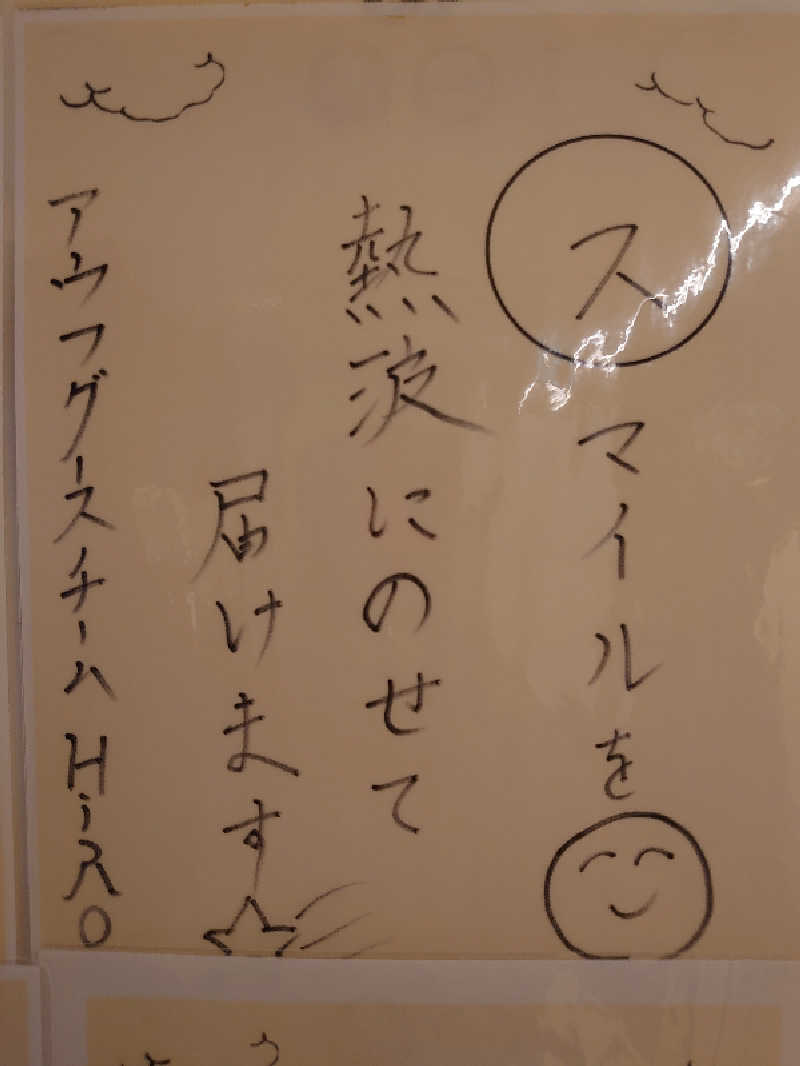 スマイルを
熱波にのせて
届けます
アウフグースチーム HiRO